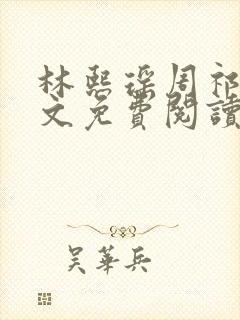 林熙琛周祁
文免費閱讀
吴華兵